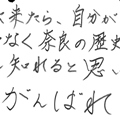 来たら、自分が
なく奈良の歴史
知れると思い
がんばれ